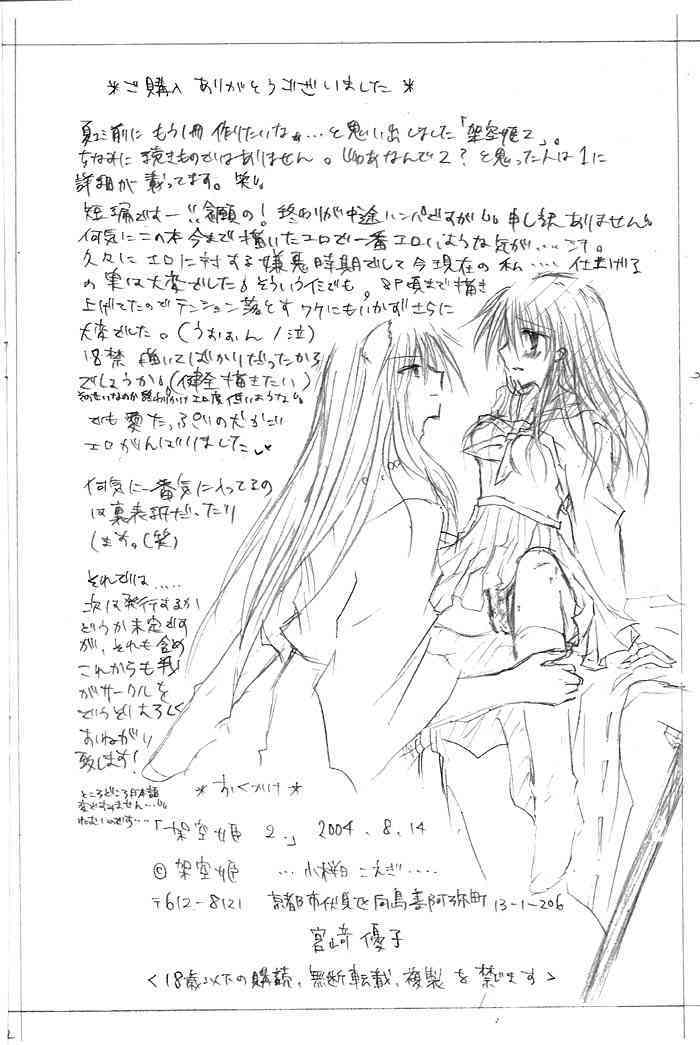 *ご購入 ありがとうございました*
夏コミ前に もう1冊 作りたいなぁ…と思い出しました「架空姫2」。
ちなみに続きものではありません。じゃあなんで2?と思った人は1に
詳細が載ってます。笑
短編ですー!!念願の!終わりが中途ハンパですが 申し訳ありません
何気にこの本今まで描いたエロで一番エロいような気が……ます。
久々にエロに対する嫌悪時期でして今現在の私…… 仕上げる
の実は大変でした そういうイミでも。8P頃まで描き
上げてたのでテンション落とすワケにもいかずさらに
大変でした。(うおおん/泣)
18禁 描いてばかりだったから
でしょうか。(健全描きたい)
でも愛たっぷりの
エロがんばりました
何気に一番気に入ってるの
は裏表紙だったり
します。(笑)
それでは.....
次は発行するか
どうか未定です
が、それも含め
これからも我
がサークルを
どうぞよろしく
おねがい
致します!
ところどころ日本語
変ですみません…
ねむいのです…
*おくづけ*
「架空姫 2.」 2004.8.14
© 架空姫 …小桜 こえぎ....
〒612-8121 京都市伏見区向島善阿弥町 13-1-206
宮﨑 優子
<18歳以下の購読、無断転載、複製を禁じます>